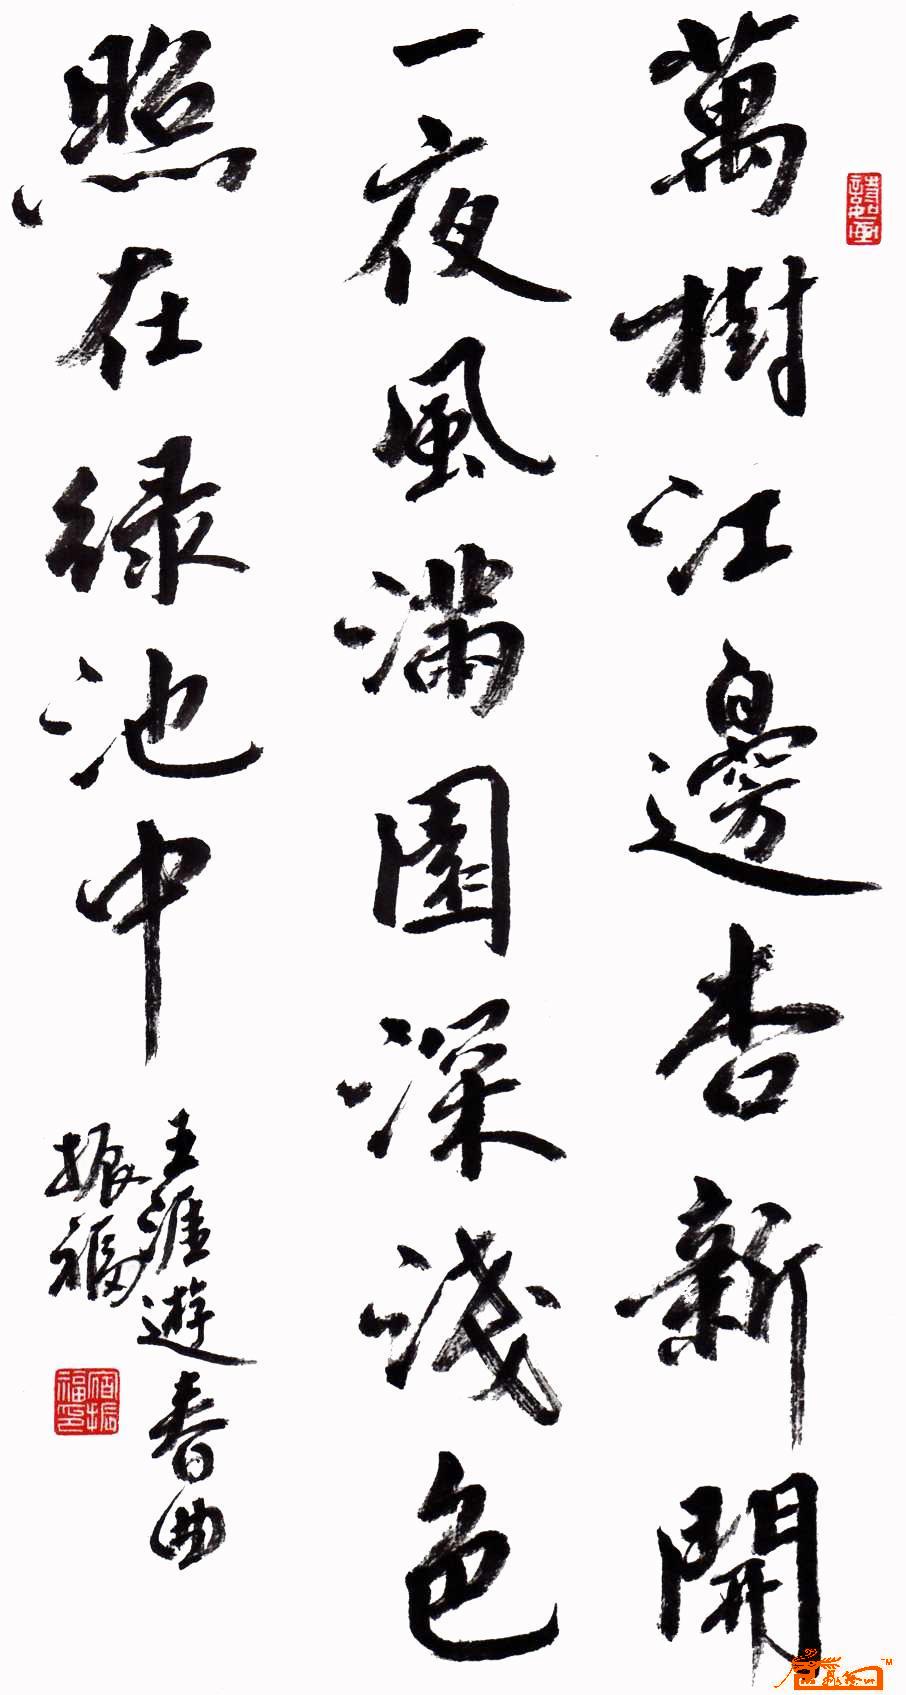 萬樹江邊杏新開
一夜風滿園深淺色
照在绿池中
王涯遊春曲
振福